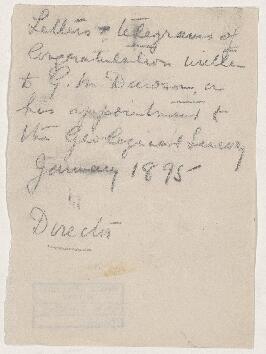 Letters & telegrams of
Congratulation written
to G. M. Dawson, on
his appointment to
the Geological Survey
January 1895
Director